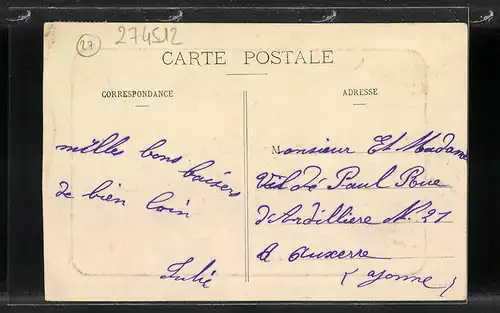 27
274512
CARTE POSTALE
CORRESPONDANCE
ADRESSE
milles bons baisers
de bien loin
Julie
Monsieur Et Madame
Paul Rue
d'Ardilliere N. 21
a auxerre
(yonne)